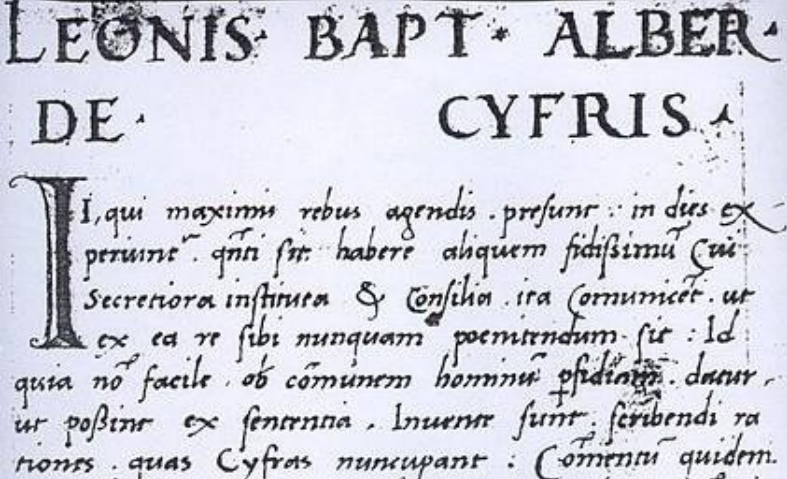 LEONIS· BAPT· ALBER·
DE· CYFRIS·
II, qui maximis rebus agendis . presunt : in dies ex
periunt᷑ . qñti sit habere aliquem fidissimū Cui
Secretiora instituta & Consilia . ita Comunicet . ut
ex ea re sibi nunquam poenitendum sit : Id
quia nō facile . ob cōmunem hominū ꝑfidiam . datur .
ut possint ex sententia . Inuente sunt . scribendi ra
tiones . quas Cyfras nuncupant : Cōmentū quidem .